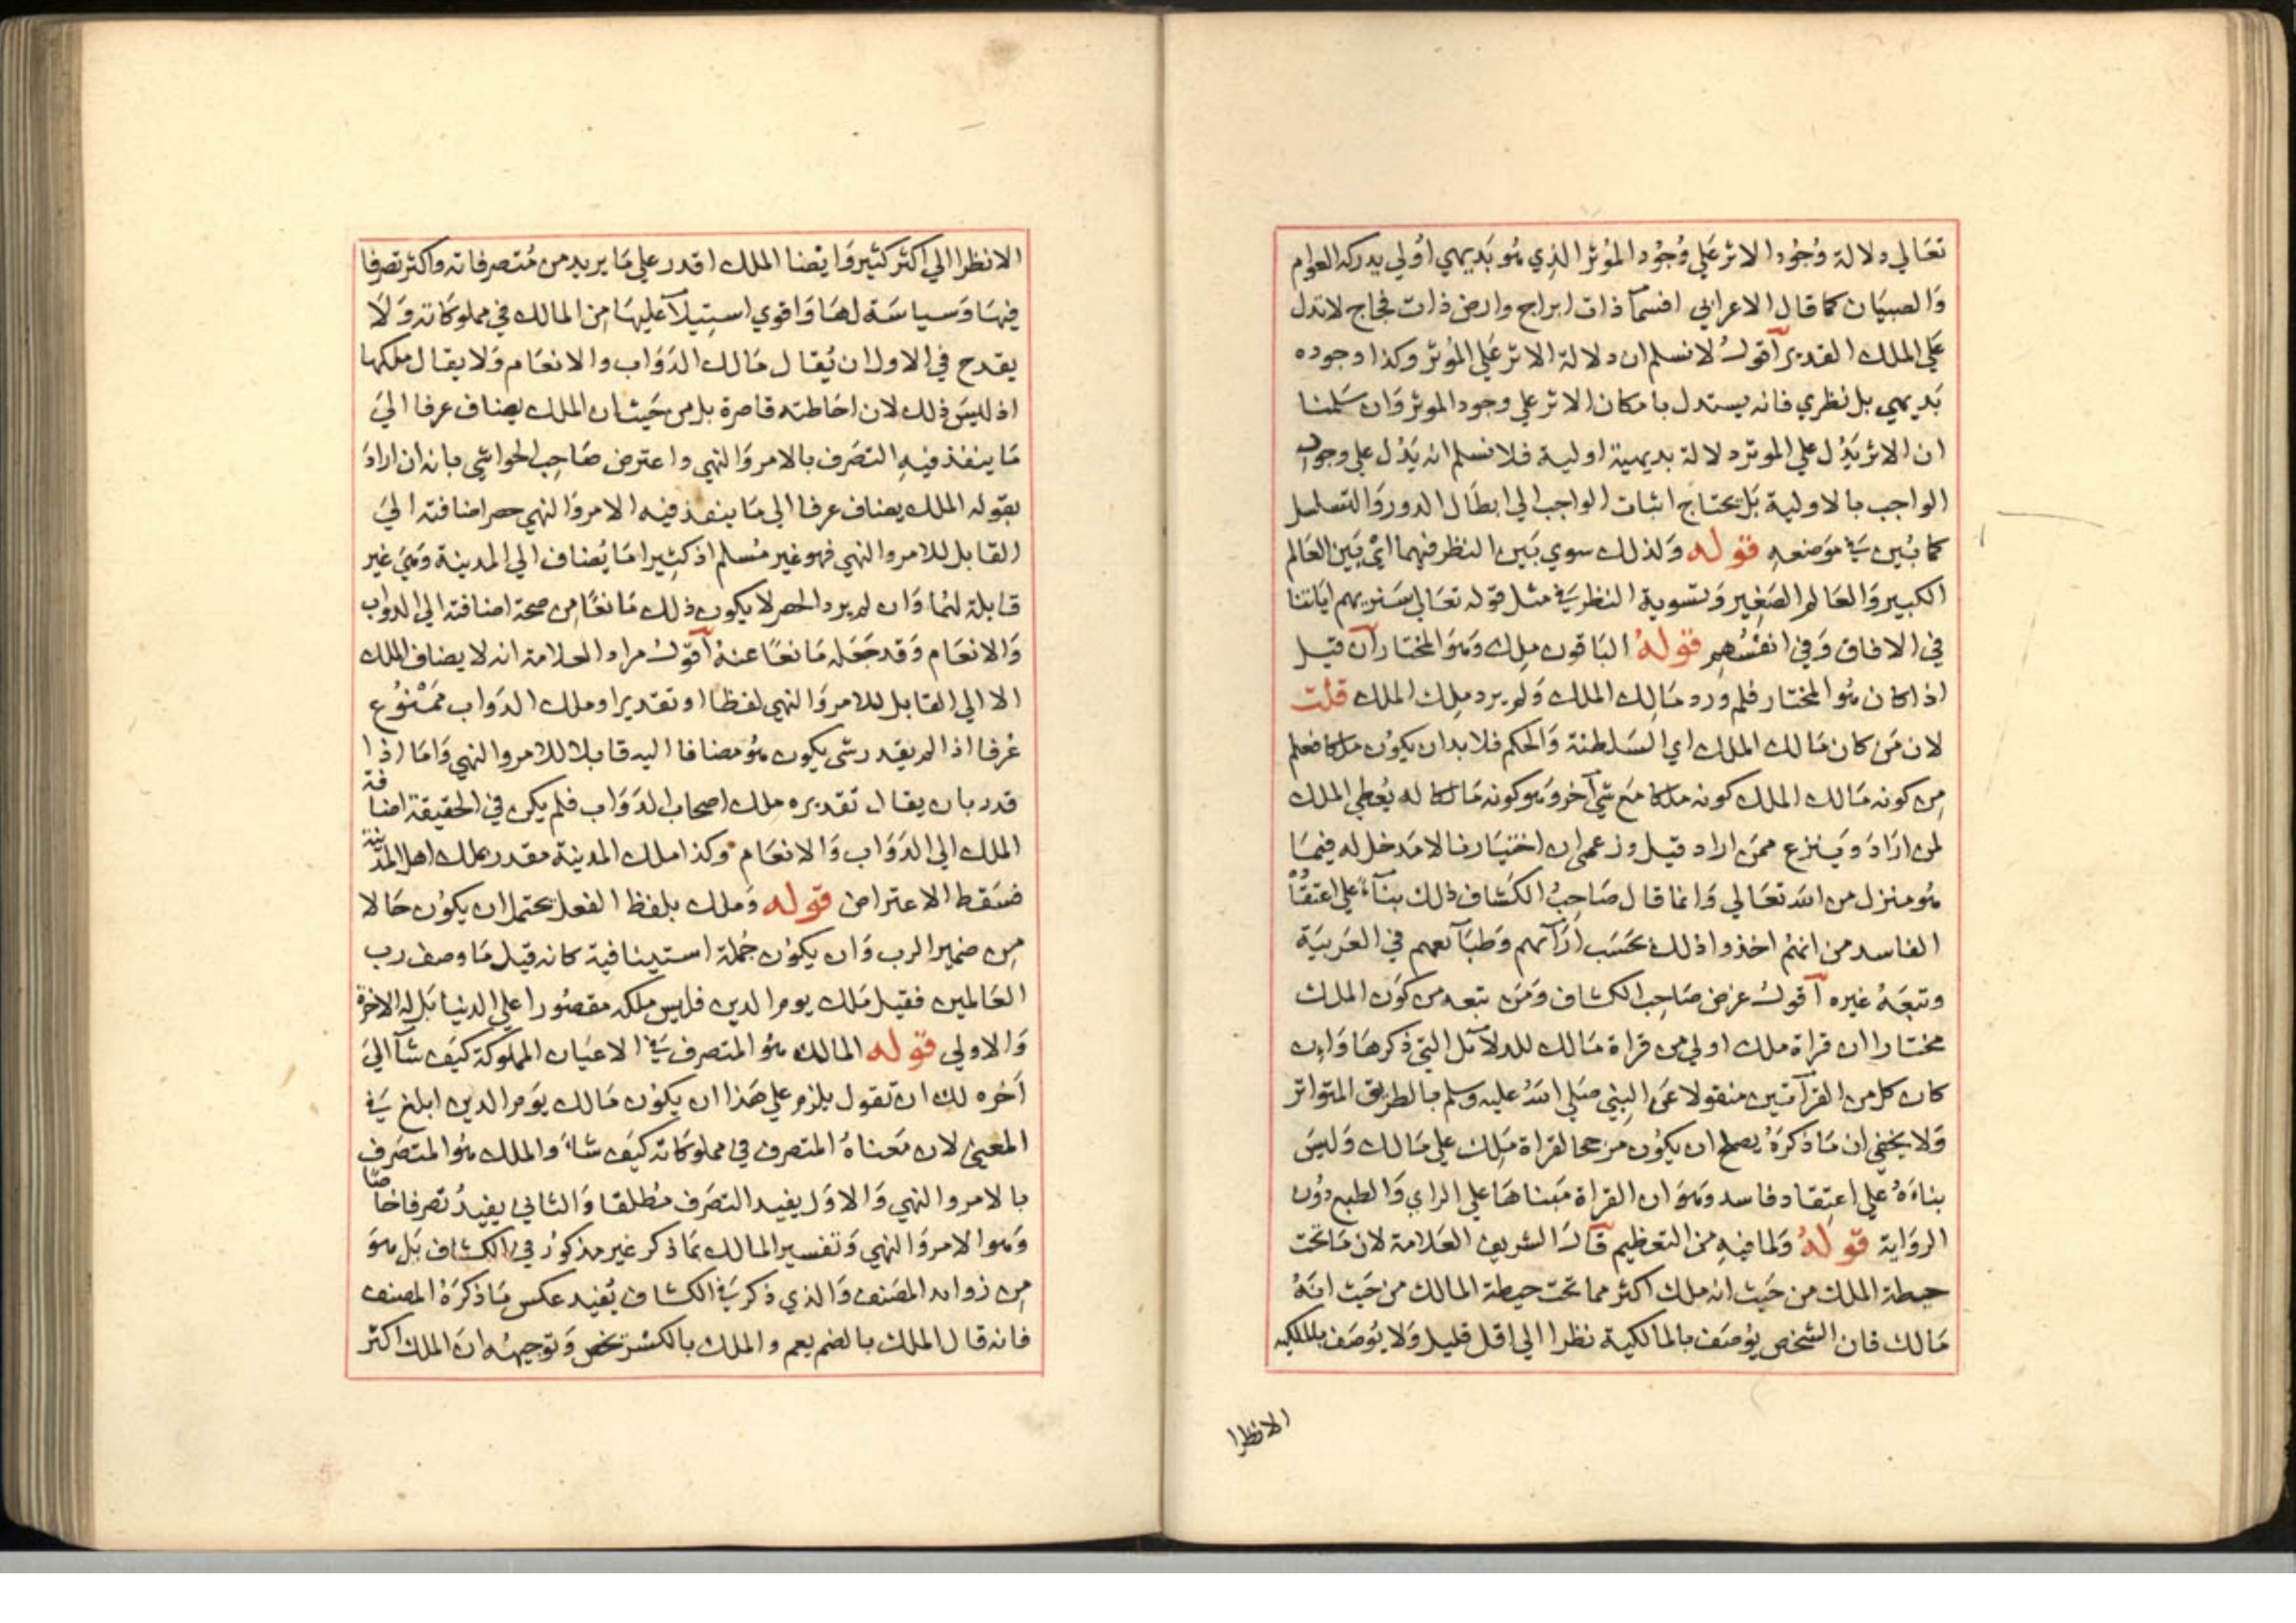 تعَالي دلالة وُجُود الاثر عَلي وُجُود المؤثر الذِي هُو بَديهي اوُلي يدركه العوام
وَالصبيَان كما قال الاعرابي افسمآ ذات ابراج وارض ذات فجاج لاتدل
عَلي الملك القدير آقولُ لانسلم ان دلالة الاثر عَلي المؤثر وكذا وجوده
بَديهي بل نظري فانه يستدل بامكان الاثر علي وجود الموثر وَان سَلمنا
ان الاثر يَدُل علي الموثر دلالة بديهية اولية فلا نسلم انه يَدُل علي وجود
الواجب بالاولية بَل يحتاج اثبات الواجب الي ابطَال الدور وَالتسلسل
كما بُين في مَوضعهِ قوله وَلذلك سوي بَين النظر فيهما ايْ بَين العَالم
الكبير وَالعَالم الصَغِير وَتسوية النظر في مثل قوله تعَالي سَنريهم ايَاتنا
في الافاق وَفي انفسُهِم قولهُ البَاقون مِلك وَهوَ المختار آن قيل
اذا كان هُو المختار فلم ورد مَالِك الملك وَلم يرد مِلك الملك قلت
لان مَن كان مَالك الملك اي السَلطنة وَالحكم فلابد ان يكوُن ملكا فعلم
مِن كونه مَالك الملك كونه ملكا مَع شي آخر وَهو كونه مَالكا له يُعطي الملك
لمن ارَادَ وَينزع ممَن اراد قيل وزعمي ان اختيَارنا لا مَدخل له فيمَا
هُو منزل من الله تعَالي وَانما قال صَاحِبُ الكشاف ذلك بنآءً علي اعتقاد
الفاسد من انهُم اخذوا ذلك بحَسَب ارَآئهم وَطبَآئعهم في العَربيَة
وتبعَهُ غيره آقولُ غرض صَاحِب الكشاف وَمَن تبعه من كوَن الملك
مختارا ان قراة ملك اولي من قراة مَالك للدلآئل التي ذكرهَا وَان
كان كل من القرآئتين منقولا عَن النبِي صَلي اللهُ عليه وسلم بالطريق المتواتر
وَلا يخفي ان مَا ذكرَهُ يصلح ان يكوُن مرجحا لقراة مَلِك علي مَالك وَليسَ
بناءَهُ عَلي اعتِقاد فاسد وَهوَ ان القراة مَبناهَا علي الراي وَالطبع دوُن
الروَاية قولهُ وَلما فيهِ مِن التعظيم قآلَ الشريف العَلامة لان مَا تحت
حيطة الملك من حَيث انه ملك اكثر مما تحت حيطة المالك من حَيث انهُ
مَالك فان الشخص يوُصَف بالمالكية نظرا الي اقل قليل وَلا يوُصَف بالملكيه
الانظرا
الانظرا الي اكثر كثير وَايضا الملك اقدر علي مَا يريد من مُتصرفاته واكثر تصرفا
فيهَا وَسياسَة لهَا وَاقوي استِيلآ عليهَا مِن المالك في مملوكَاته وَلَا
يقدح في الاول ان يُقال مَالك الدَوَاب والانعَام وَلا يقال ملكها
اذ ليسَ ذلك لان احَاطته قاصرة بل من حَيث ان الملك يضاف عرفا اليَ
مَا ينفذ فيهِ التصَرف بالامر وَالنهي واعترض صَاحِب الحواشي بانه ان ارادَ
بقوله الملك يضاف عرفا الي مَا ينفذ فيه الامر وَالنهي حصر اضافته اليَ
القابل للامر والنهي فهو غير مُسلم اذ كثِيرا مَا يُضاف الي المدينة وَهيَ غير
قابلة لهُما وَان لم يرد الحصر لا يكون ذلك مَانعًا مِن صحة اضافته الي الدواب
وَالانعَام وَقد جَعَله مَانعًا عنهُ آقولُ مراد العلامة انه لا يضاف الملك
الا الي القابل للامر وَالنهي لفظا او تقديرا وملك الدَواب ممَنوُع
عُرفا اذا لم يقدر شي يكون هُو مضافا اليه قابلا للامر والنهي وَامَا اذا
قدر بان يقال تقديره ملك اصحاب الدَوَاب فلم يكن في الحقيقة اضافة
الملك الي الدَوَاب وَالانعَام وكذا ملك المدينة مقدر بملك اهل المدينة
فسَقط الاعتراض قوله وَملك بلفظ الفعل يحتمل ان يكوُن حَالا
مِن ضمير الرب وَان يكوُن جُملة استينافية كانه قيل مَا وصف رب
العَالمين فقيل مَلك يوم الدين فليس ملكه مقصُورا علي الدنيا بَل له الاخرة
وَالاولي قوله المالك هُو المتصرف في الاعيَان المملوكة كيَف شآ اليَ
آخره لك ان تقول يلزم علي هَذا ان يكوُن مَالك يَوم الدين ابلغ في
المعني لان مَعناهُ المتصرف في مملوكَاته كيَف شاءَ والملك هُو المتصَرف
بالامر والنهي وَالاوَل يفيد التصَرف مُطلقا وَالثاني يفيدُ تصرفا خاصًا
وَهوا الامر وَالنهي وَتفسير المالك بمَا ذكر غير مذكوُر في الكشاف بَل هوَ
مِن زوائد المصَنف وَالذي ذكر في الكشاف يُفيد عكس مَا ذكرَهُ المصنف
فانه قال الملك بالضم يعم والملك بالكسْر يخص وَتوجيههُ ان الملك اكثر